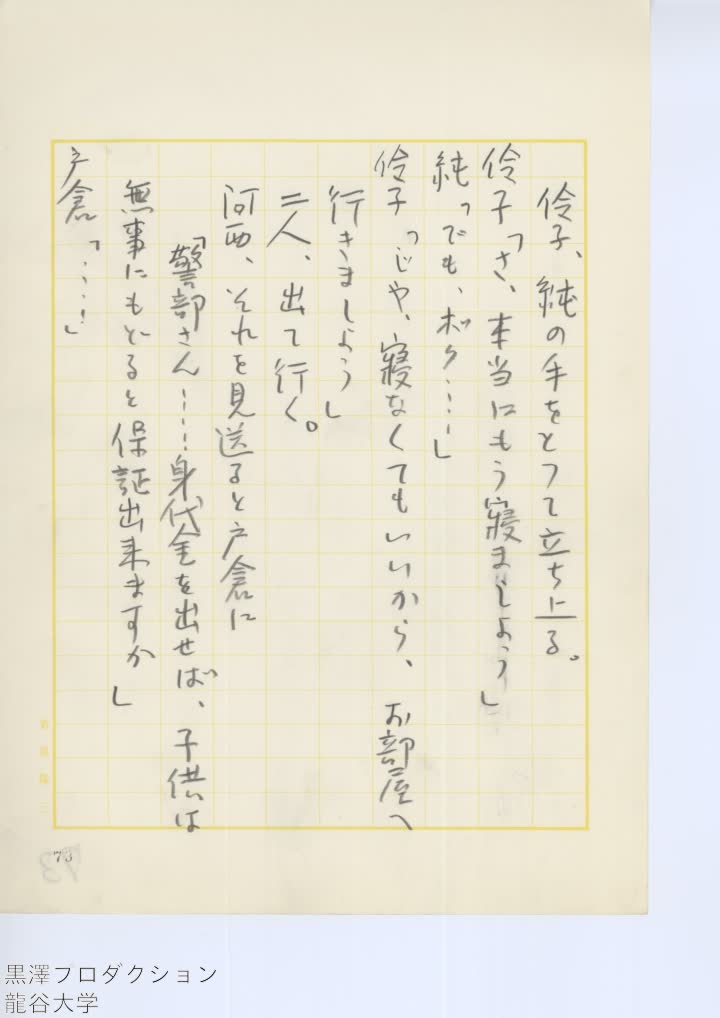 伶子、純の手をとつて立ち上る。
伶子「さ、本当にもう寝ましよう」
純「でも、ボク……」
伶子「じや、寝なくてもいいから、お部屋へ
行きましよう」
二人、出て行く。
河西、それを見送ると戸倉に
「警部さん……身代金を出せば、子供は
無事にもどると保証出来ますか」
戸倉「……」
73
黒澤プロダクション
龍谷大学